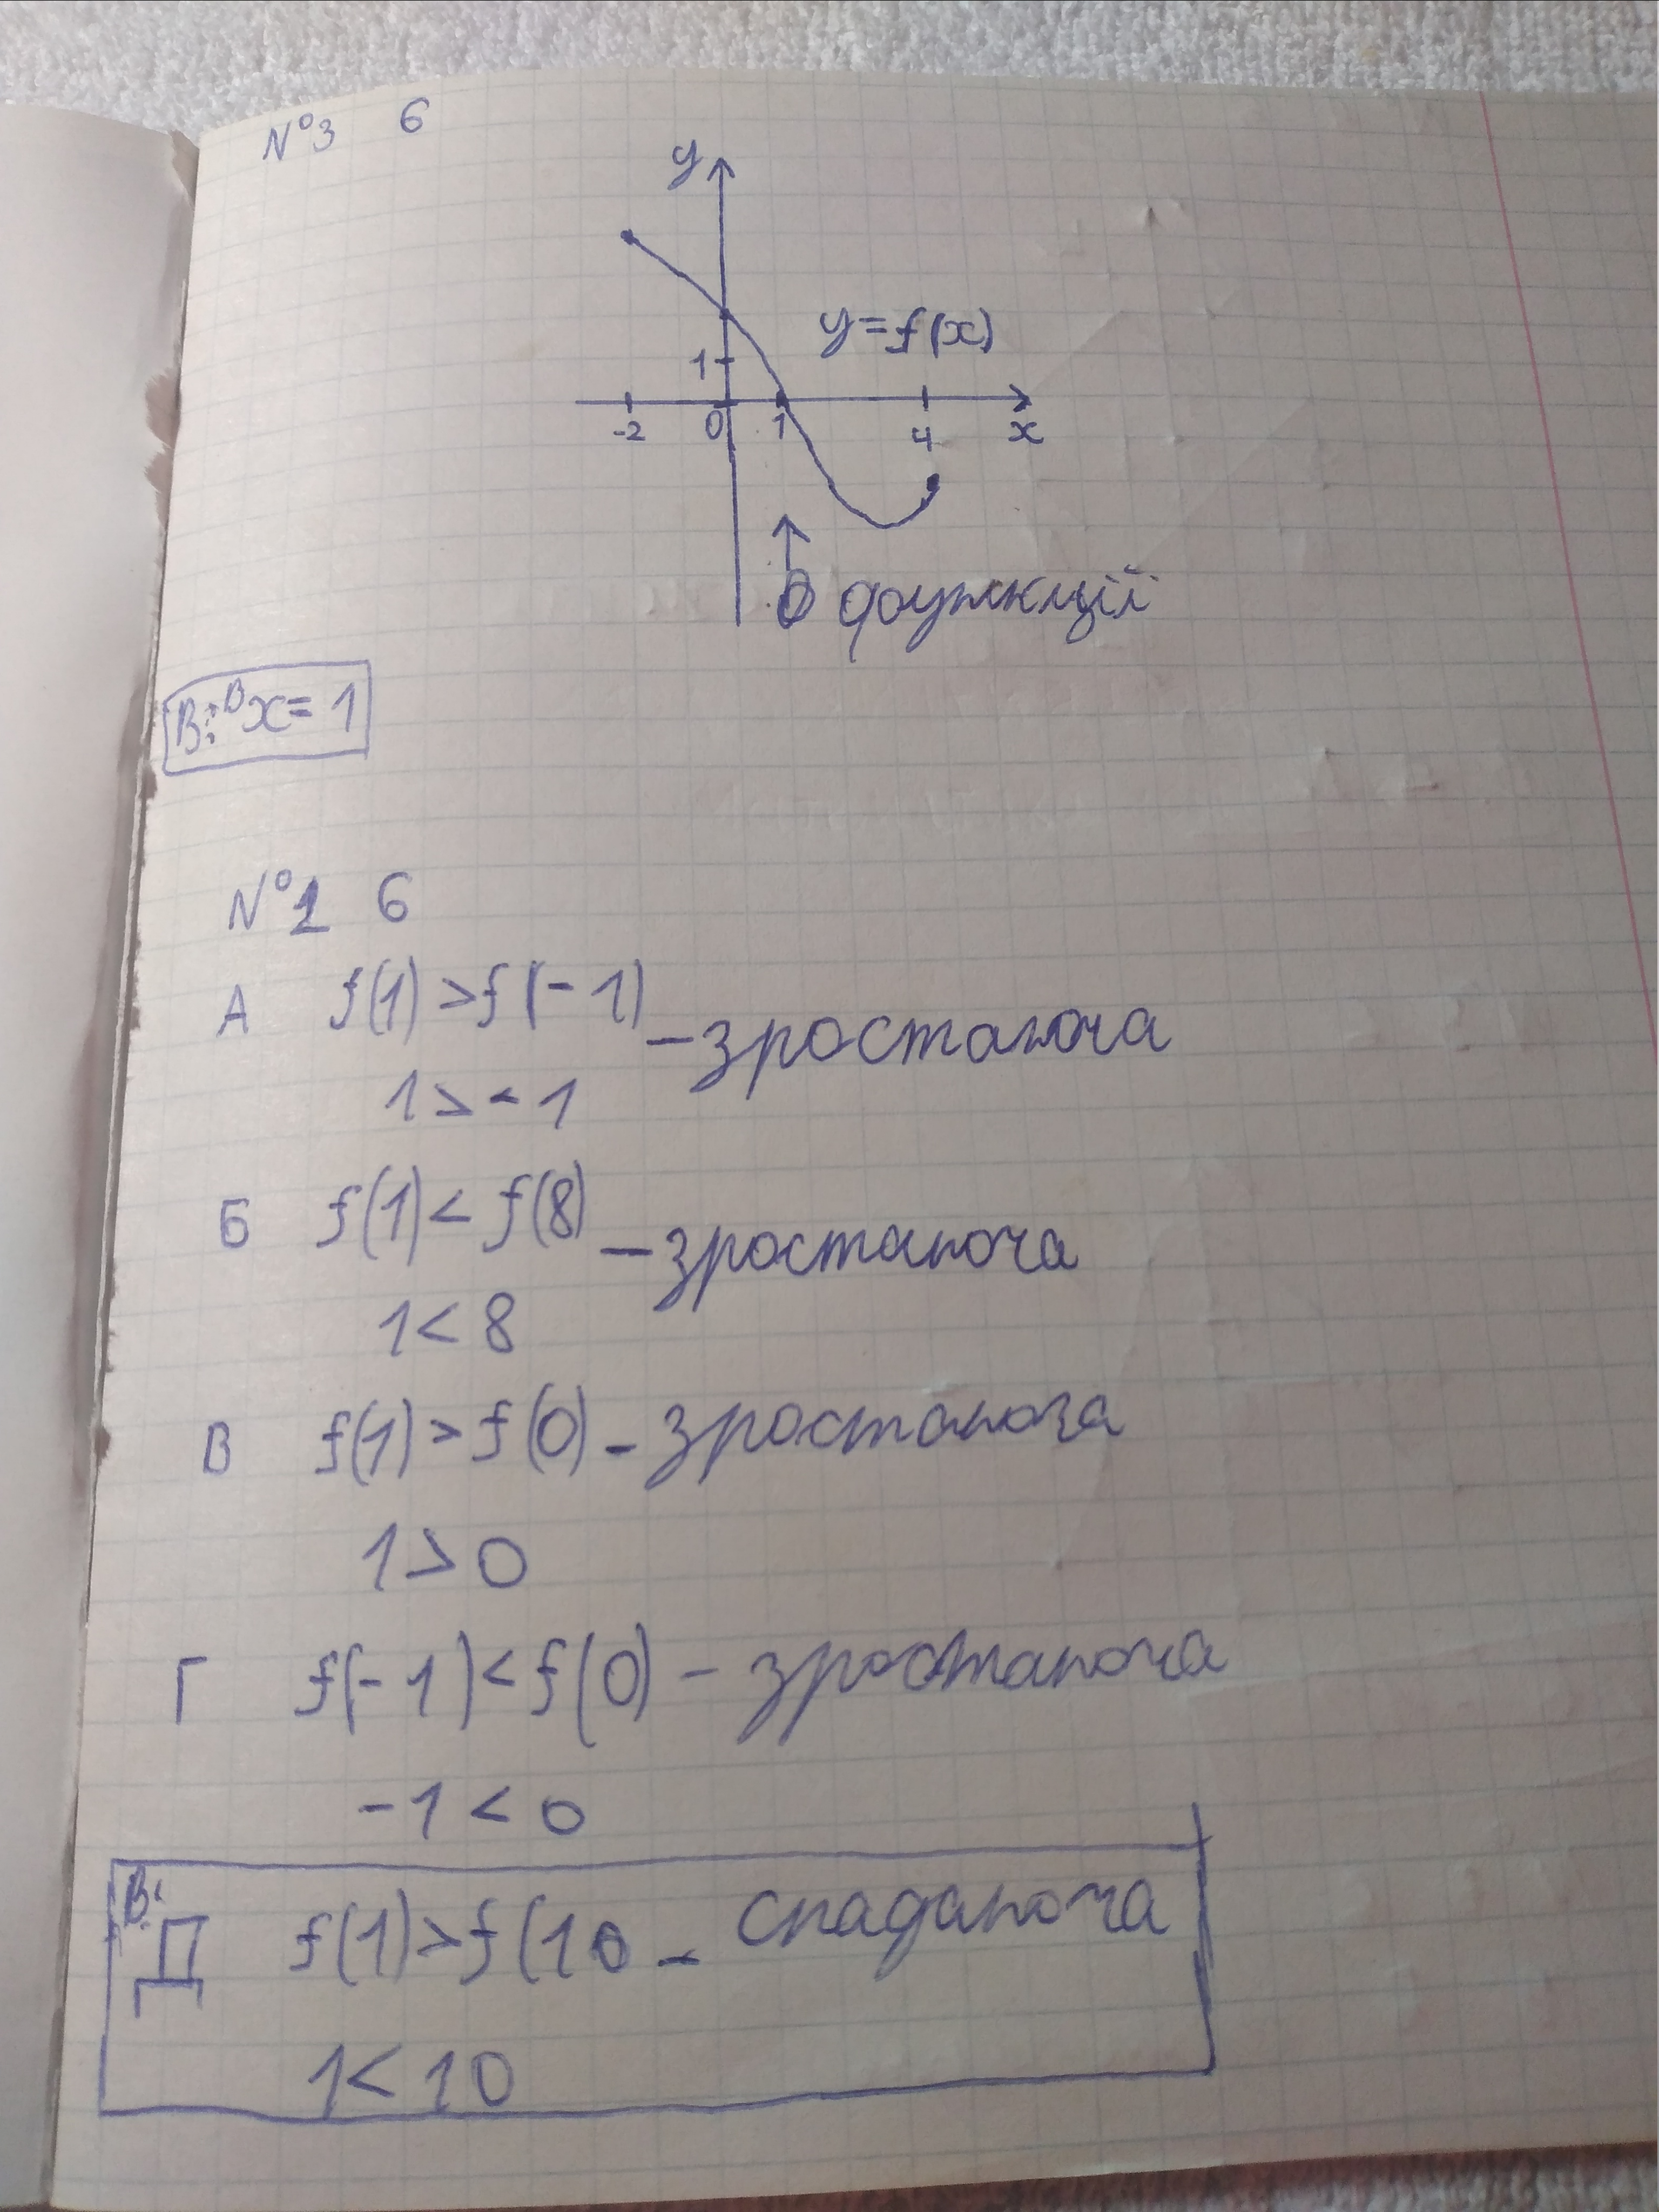 №3 6
y
y=f(x)
1
-2 0 1 4 x
0 функції
В: В x=1
№1 6
А f(1)>f(-1) – зростаюча
1>-1
Б f(1)<f(8) – зростаюча
1<8
В f(1)>f(0) – зростаюча
1>0
Г f(-1)<f(0) – зростаюча
-1<0
В:
Д f(1)>f(10 – спадаюча
1<10